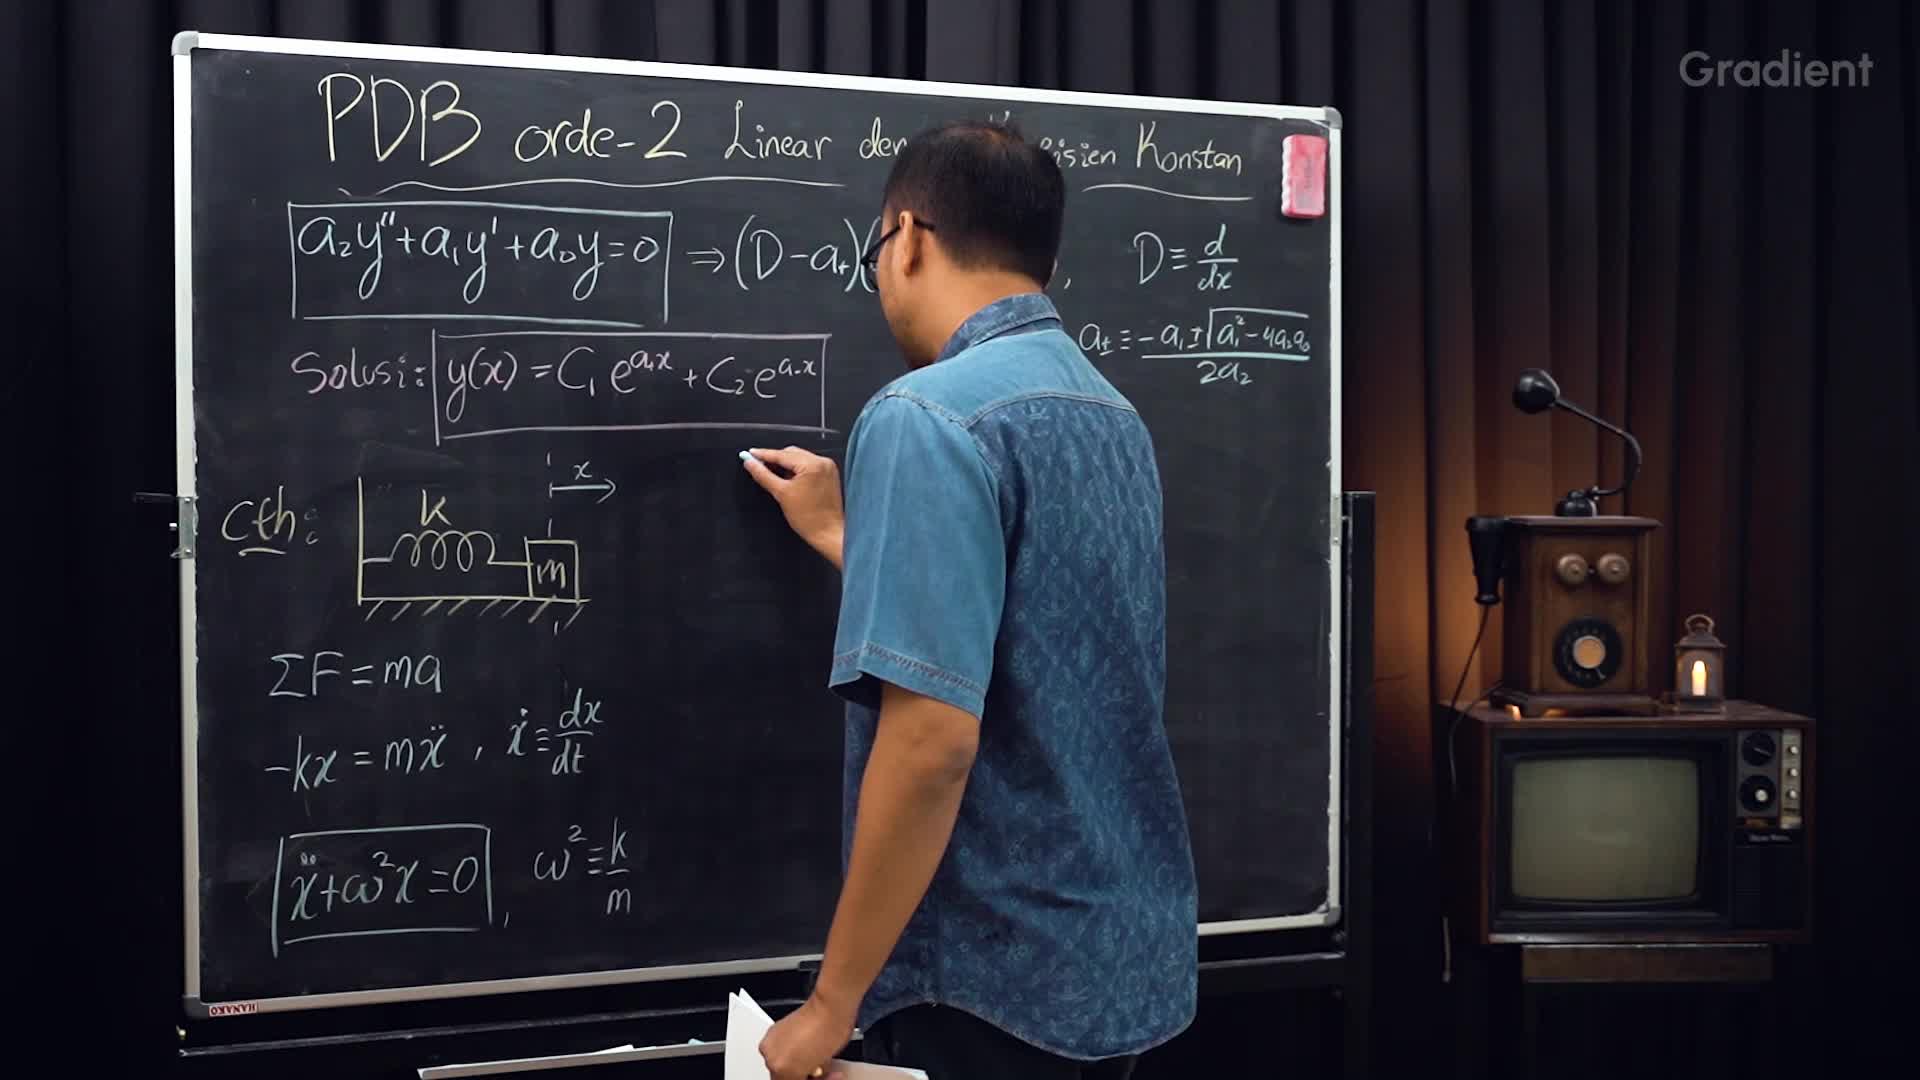 Gradient
PDB orde-2 Linear den isien Konstan
a₂y''+a₁y'+a₀y=0 ⇒(D-a₊)( , D≡d/dx
a±≡-a₁±√a₁²-4a₂a₀/2a₂
Solusi: y(x)=C₁e^a₊x+C₂e^a₋x
x
Cth:
k
m
ΣF=ma
-kx=mẍ , ẋ≡dx/dt
ẍ+ω²x=0, ω²≡k/m
HANAKO